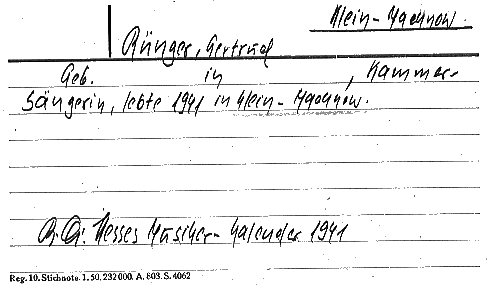 Klein-Machnow.
Rünger, Gertrud
Geb. in , Kammer-
sängerin, lebte 1941 in Klein-Machnow.
Hesses Musiker-Kalender 1941
Reg. 10. Stichnote. 1. 50. 232000. A. 803. S. 4062